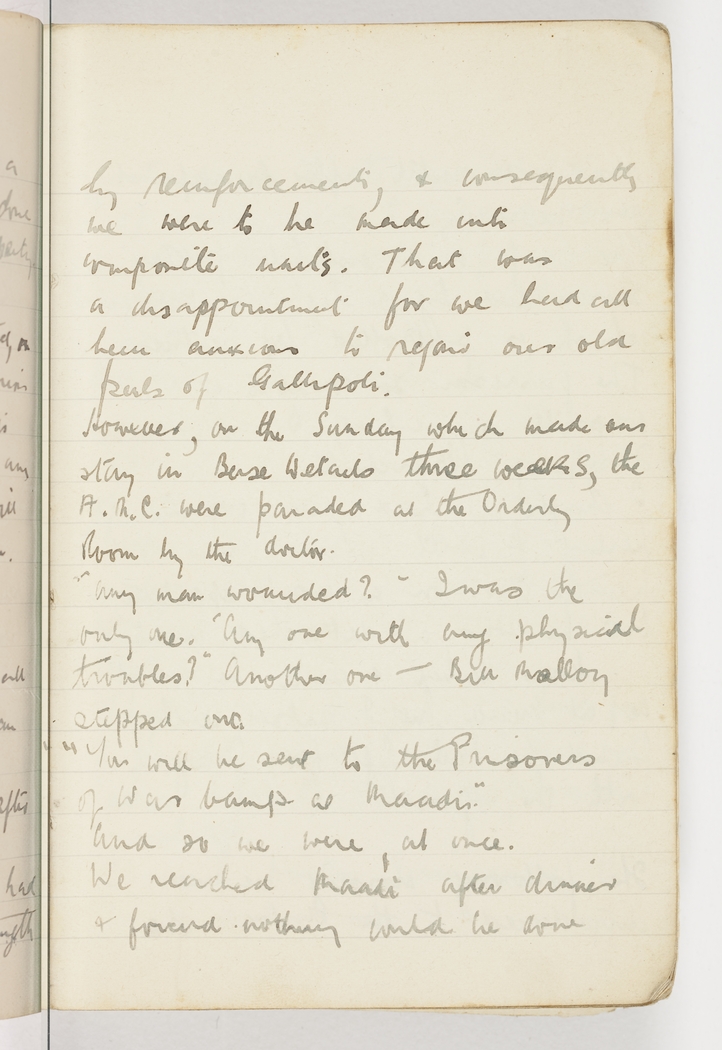 by reinforcements, & consequently
we were to be made into
composite units. That was
a disappointment for we had all
been anxious to rejoin our old
pals of Gallipoli.
However, on the Sunday which made our
stay in Base Details three weeks, the
A.M.C. were paraded at the Orderly
Room by the doctor.
"Any man wounded?" I was the
only one. "Any one with any physical
troubles?" Another one — Bill Malloy
stepped out.
"You will be sent to the Prisoners
of War Camp at Maadi."
And so we were, at once.
We reached Maadi after dinner
& found nothing could be done